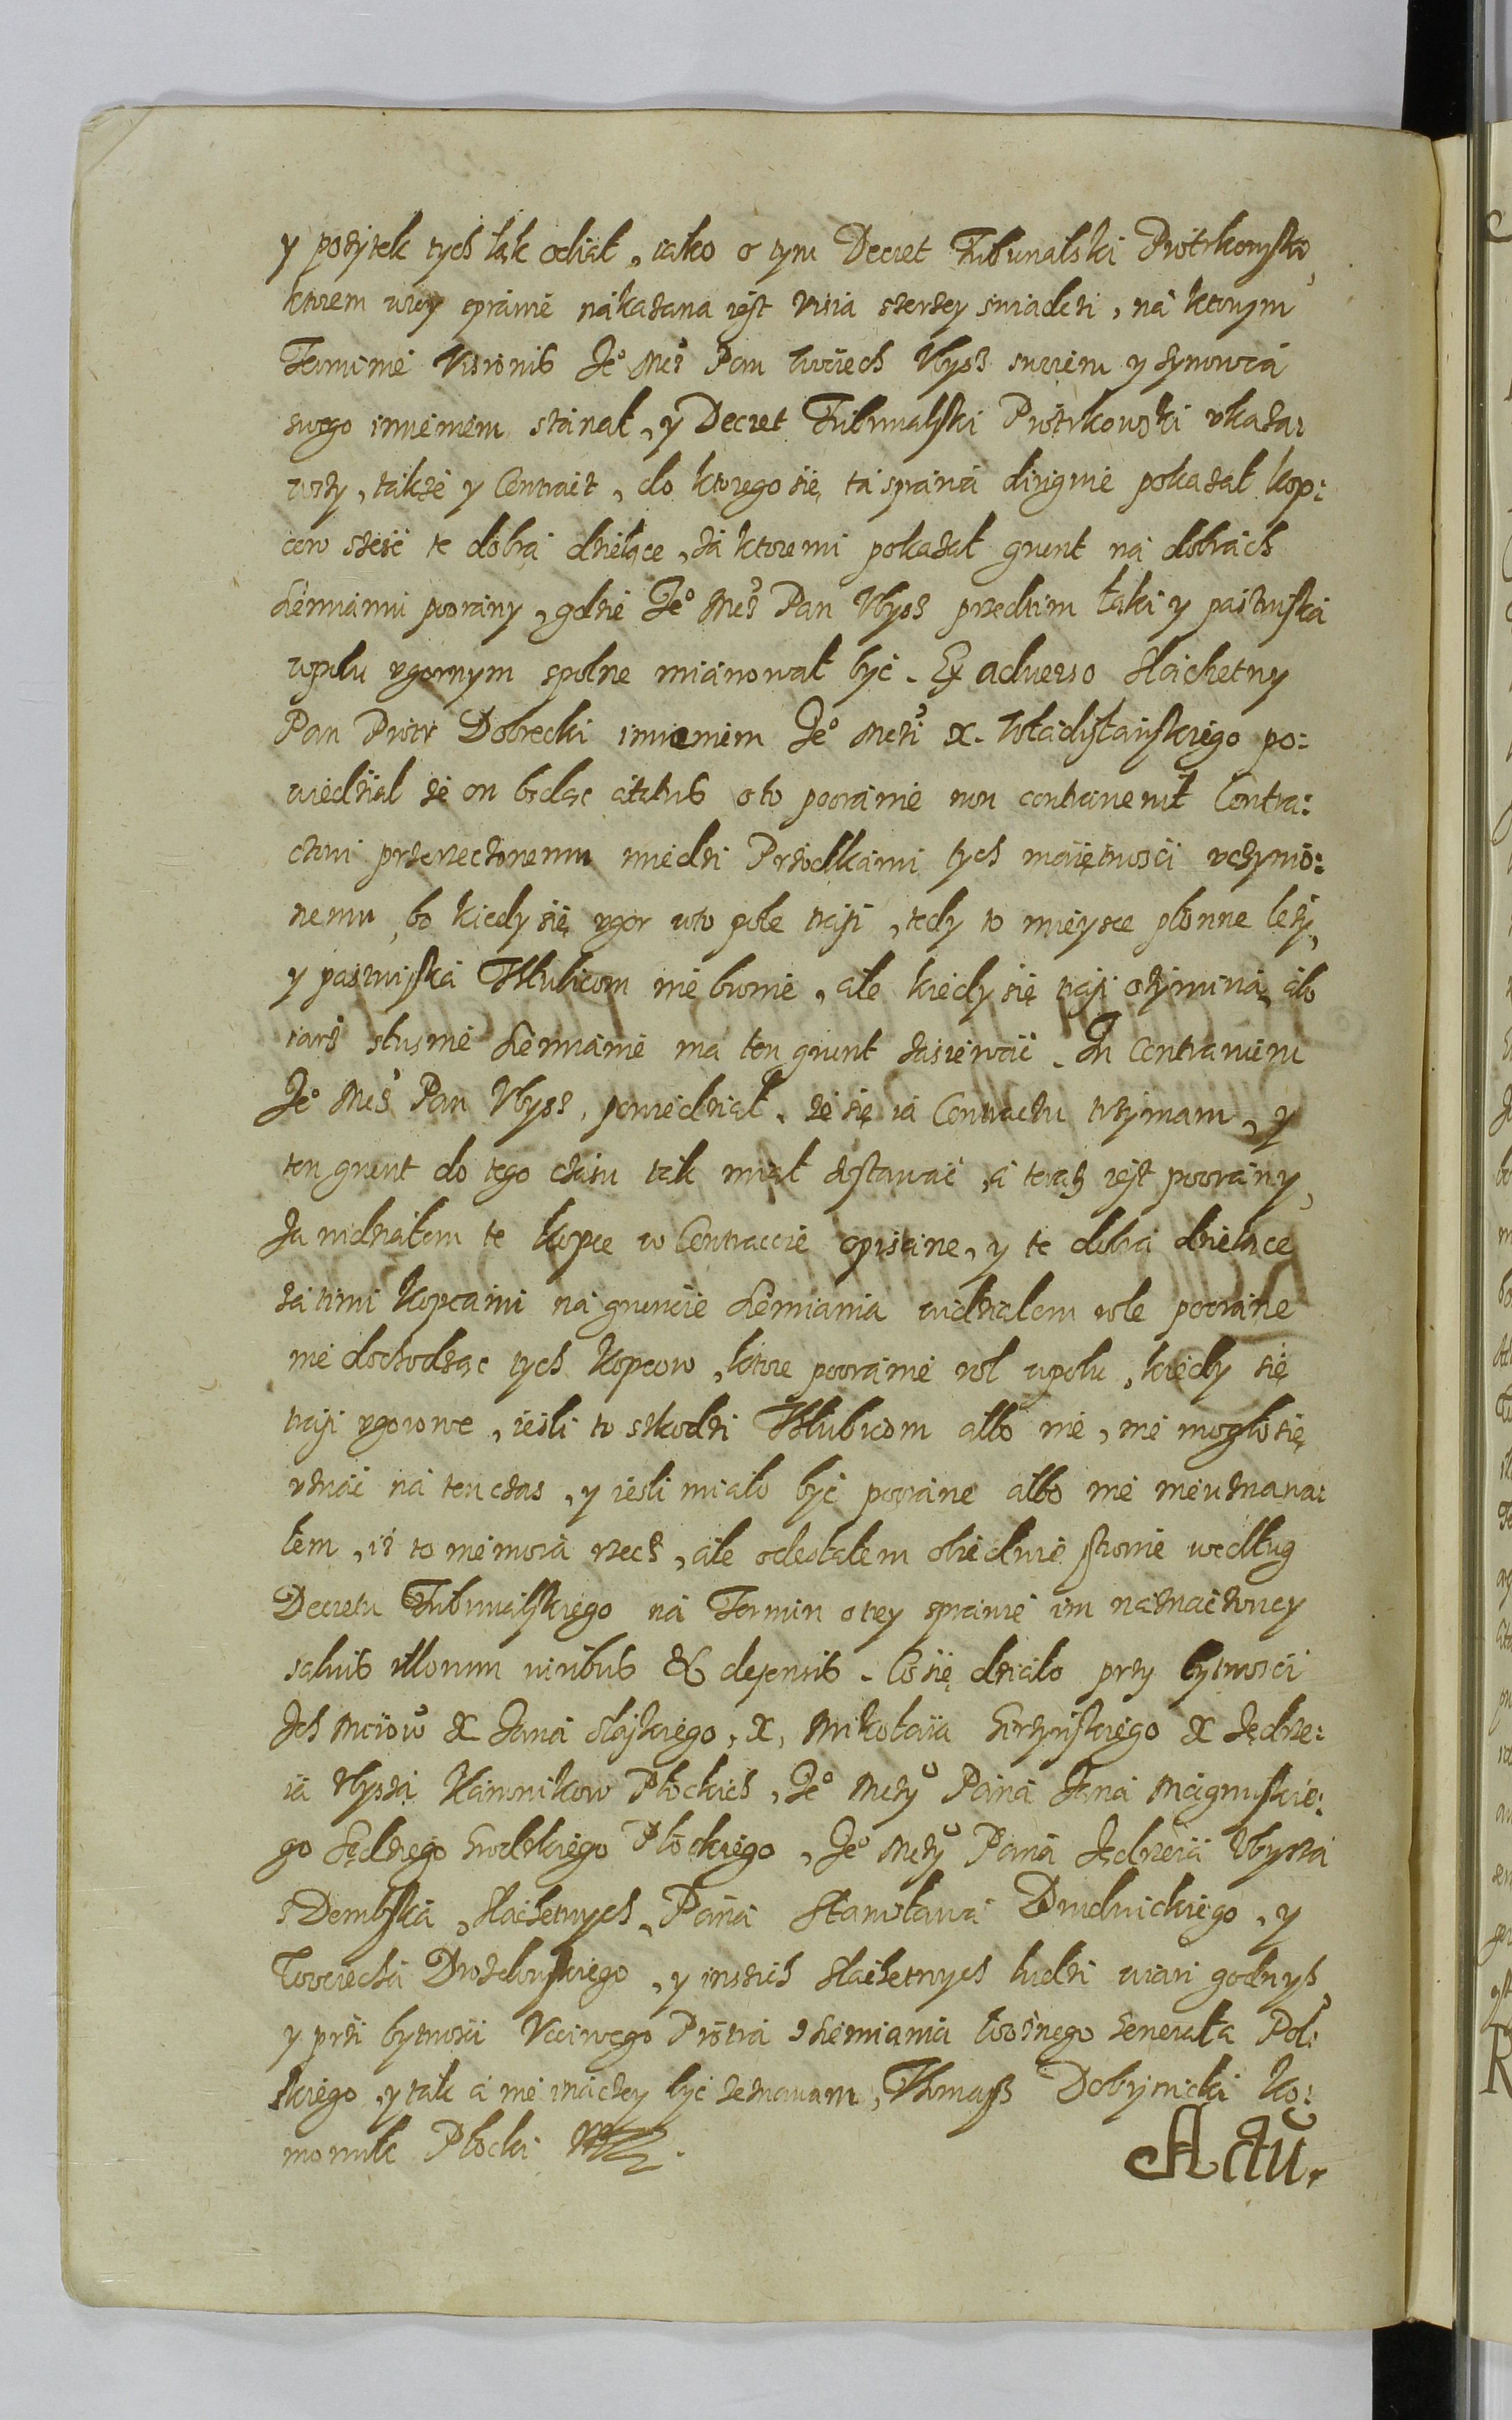 y pożytek tych łąk odiął, iako o tym Decret Tribunalski Piotrkowski,
ktorem wtey sprawie nakazana iest visia szerzey swiadczi, na ktorym
Terminie Visionis Je° Mć Pan Woiciech Vbysz swoiem y synowca
swego imieniem stanął, y Decret Tribunalski Piotrkowski vkaza:
wszy, także y Contract, do ktorego się ta sprawa diriguie pokazał kop:
cow sześć te dobra dzielące, za ktoremi pokazał grunt na dobrach
Lemianiu poorany, gdzie Je° Mć Pan Vbysz przedtim łąki y pastwiska
wpolu vgornym spolne mianował być. Ex adverso Slachetny
Pan Piotr Dobrecki imieniem Je° Mczi X. Władisławskiego po:
wiedział że on będąc citatus oto pooranie non contravenit Contra:
ctowi przerzeczonemu miedzi Przodkami tych maiętnosci vczynio:
nemu, bo kiedy się vgor wto pole trafi, tedy to mieysce płonne leży,
y pastwiska Kłubicom nie bronie, ale kiedy się trafi ozimina, albo
iarz słusznie Lemianie ma ten grunt zasiewać. In Contrarium
Je° Mć Pan Vbysz, powiedział, że się ia Contractu trzymam, y
ten grunt do tego czasu tak miał zostawać, a teraz iest poorany,
Ja widziałem te kopce w Contraccie opisane, y te dobra dzielące
za timi kopcami na gruncie Lemiania widziałem role poorane
nie dochodząc tych kopcow, ktore pooranie rol wpolu, kiedy się
trafi vgorowe, ieśli to szkodzi Kłubicom albo nie, nie mogło się
vznać na ten czas, y iesli miało być poorane albo nie nieuznawa:
łem, iż to nie moia rzecz, ale odesłałem obiedwie stronie według
Decretu Tribunalskiego na Termin otey sprawie im naznaczoney
salvis illorum iuribus & defensis. Co się działo przy bytnosci
Ich Mciow X Jana Slaskiego, X, Mikołaia Gorzynskiego X Jędrze:
ia Vbysza Kanonikow Płockich, Je° Mczy Pana Jana Magnuskie:
go Sędziego Grodzkiego Płockiego, Je° Mczy Pana Jędrzeia Vbysza
z Dembska, Slachetnych, Pana Stanisława Drudnickiego, y
Woiciecha Drozdowskiego, y inszich Slachetnych ludzi wiari godnych,
y przi bytnosci Vcciwego Piotra z Lemiania Woźnego Generała Pol:
skiego, y tak a nie inaczey być zeznawam, Thomasz Dobrznicki Ko:
mornik Płocki
Actũ.